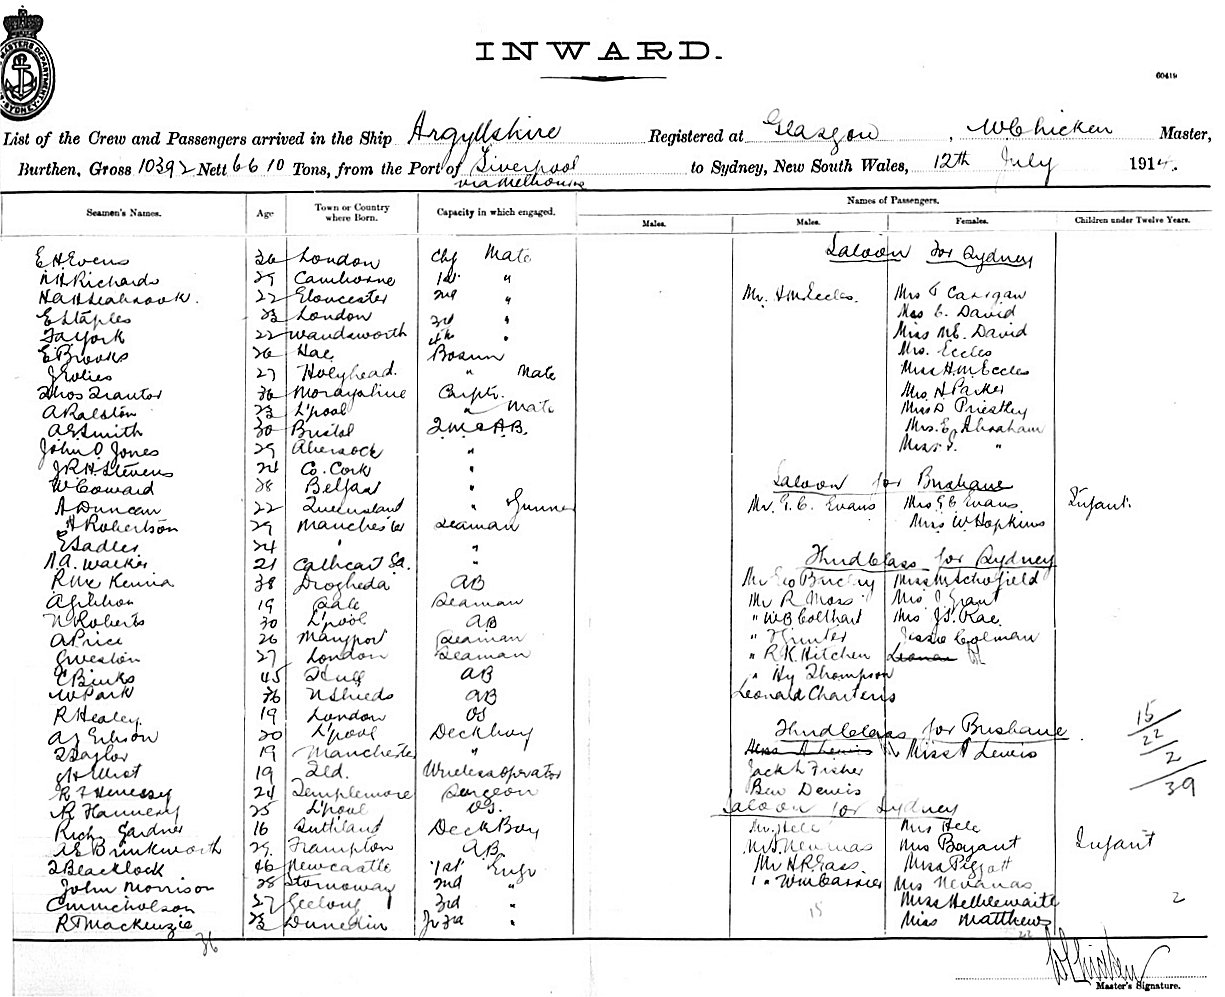 INWARD.
60419
List of the Crew and Passengers arrived in the Ship Argyllshire Registered at Glasgow, W Chicken Master,
Burthen, Gross 10392 Nett 6610 Tons, from the Port of Liverpool to Sydney, New South Wales, 12th July 1914.
via Melbourne
Names of Passengers.
Seamen's Names. Age Town or Country where Born. Capacity in which engaged. Males. Males. Females. Children under Twelve Years.
Saloon for Sydney
E H Evens London Chf Mate
Richards 29 Camborne 1st "
22 Gloucester 2nd " Mr. H M Eccles. Mrs Carrigan
E Staples 23 London 3rd " Miss C. David
York 22 Wandsworth 4th " Miss M E. David
E Brooks Bosun Mrs. Eccles
27 Holyhead. " Mate Miss H. M. Eccles
Thos Trantor Morayshire Carptr. Mrs. H Parker
A Ralston 23 L'pool " Mate Miss D Priestley
A E Smith 30 Bristol Q.M. & A.B. Mrs. E. Abraham
John O. Jones 29 " Miss "
J R H Stevens 24 Co. Cork " Saloon for Brisbane
W Coward 28 Belfast "
A Duncan 22 Queensland " Gunner Mr. G. C. Evans Mrs G C Evans. Infant.
H Robertson 29 Manchester Seaman Miss W Hopkins
E Sadler 24 " "
A. Walker 21 Cathcart " Third Class for Sydney
R McKenna 38 Drogheda AB Mr Geo Miss M Schofield
19 Seaman Mr R Moss Mrs Grant
N Roberts 30 L'pool AB " W B Colthart Mrs J. Rae.
A Price 26 Maryport Seaman " Hunter Jessie Colman
G Weston 27 London Seaman " R K Hitchen
C Binks 45 Hull AB " Hy Thompson
W Park 36 N Shields AB Leonald Charteris
R Healey. 19 London OS
A J Gibson 20 L'pool Deckboy Third Class for Brisbane 15
T Taylor 19 Manchester " Miss Lewis 22
West 19 Wireless operator Jack L Fisher 2
R T Henessy 24 Templemore Surgeon Ben Dewis 39
R Flannery 25 L'pool OS. Saloon for Sydney
Richd Gardner 16 Deck Boy Mr. Hele Mrs Hele
A E Brinkworth 29 Frampton A.B. Mrs Bryant Infant
T Blacklock 46 Newcastle 1st Engr Mr H R Gass. Miss Piggott
John Morrison 28 Stornoway 2nd " " Wm Carrier Mrs Nevanas
C M Nicholson 27 Geelong 3rd " 15 Miss Hebblewaite 2
R T Mackenzie 23 Dunedin Jr 3rd " Miss Matthews
36 22
W Chicken
Master's Signature.